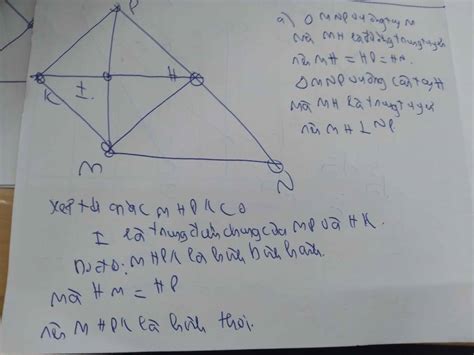 P
K
I
H
M
N
a) Δ MNP vuông tại M
mà MH là đường trung tuyến
nên MH = HP = HN
ΔMNP vuông cân tại H
mà MH là trung tuyến
nên MH ⊥ NP.
Xét tứ giác MHPK có
I là trung điểm chung của MP và HK.
Do đó: MHPK là hình bình hành.
mà HM = HP
nên MHPK là hình thoi.